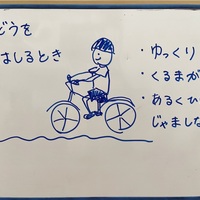 どうを
はしるとき
・ゆっくり
・くるまが
・あるくひ
じゃましな